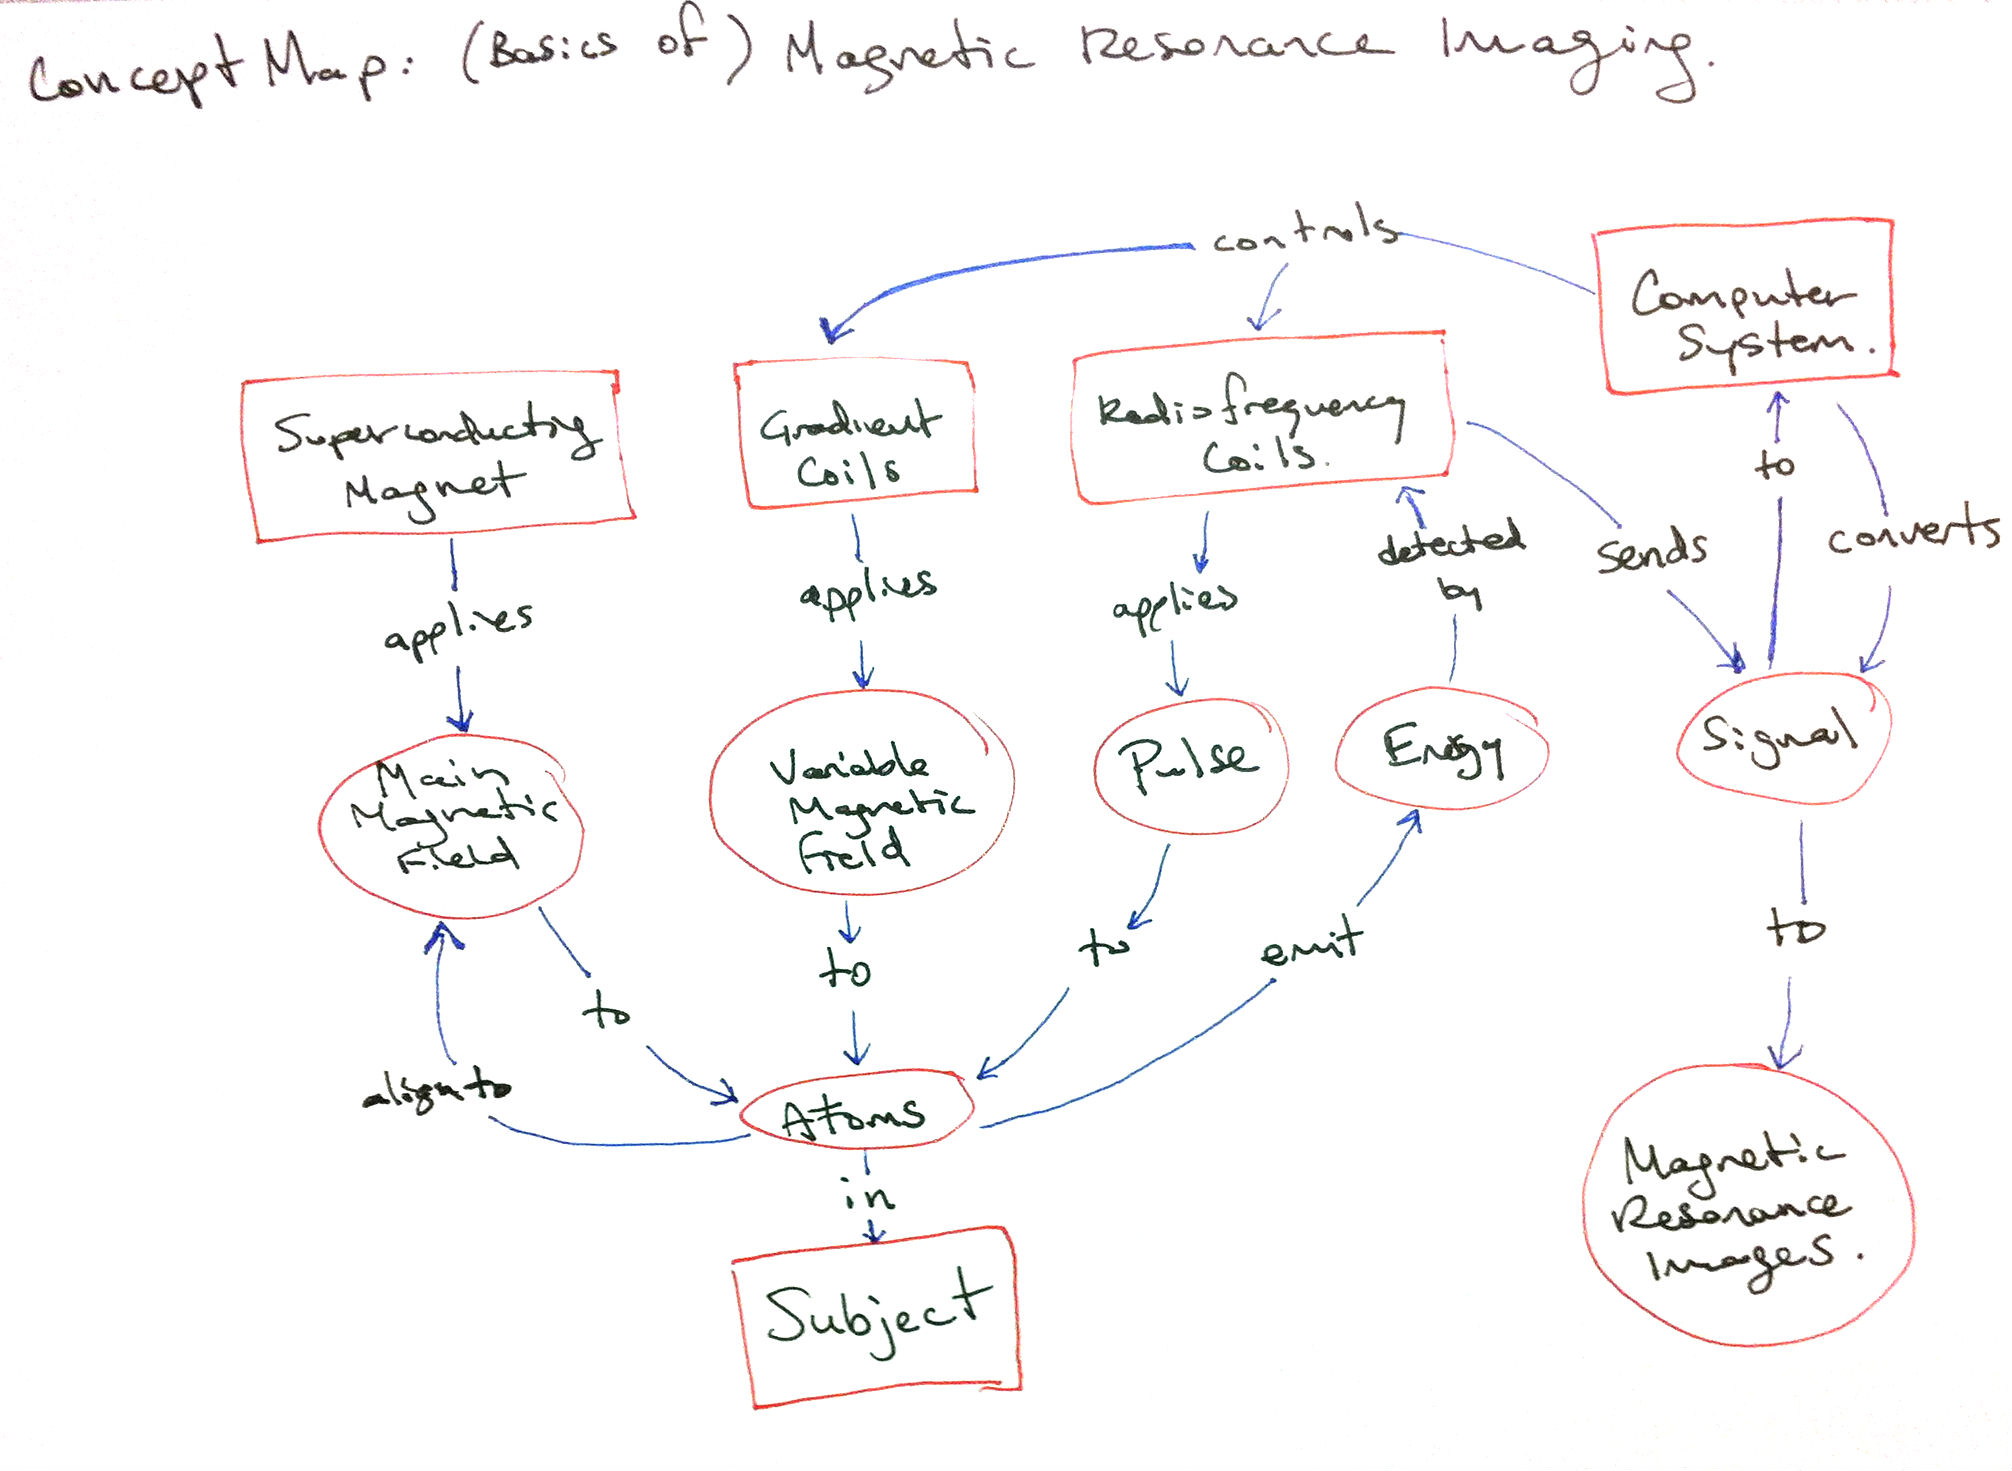 Concept Map: (Basics of) Magnetic Resonance Imaging.
controls
Computer
System.
Superconducting
Magnet
Gradient
Coils
Radiofrequency
Coils.
to
converts
sends
detected
by
applies
applies
applies
Main
Magnetic
Field
Variable
Magnetic
Field
Pulse
Energy
Signal
to
to
to
emit
to
align to
Atoms
in
Subject
Magnetic
Resonance
Images.